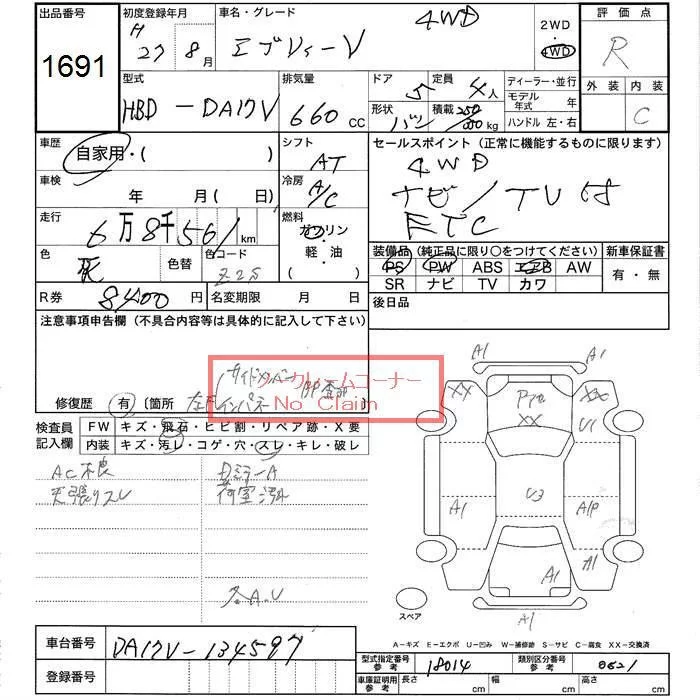 出品番号
1691
初度登録年月
H 27年 8月
車名・グレード
エブリィーV 4WD
2WD
4WD
評価点
R
型式
HBD-DA17V
排気量
660 CC
ドア
5
定員
4人
ディーラー・並行
モデル年式 年
形状
バン
積載
kg
ハンドル 左・右
外装 内装
C
車歴
自家用・( )
シフト
AT
セールスポイント (正常に機能するものに限ります)
4WD
ナビ/TV付
ETC
車検
年 月( 日)
冷房
A/C
走行
6万8千561km
燃料
ガソリン
軽・油
( )
色
灰
色替
色コード
Z2S
装備品 (純正品に限り○をつけてください)
PS PW ABS エアB AW
SR ナビ TV カワ
新車保証書
有・無
R券
8400円
名変期限 月 日
後日品
注意事項申告欄 (不具合内容等は具体的に記入して下さい)
ノークレームコーナー
No Claim
修復歴 有 〔箇所
検査員
記入欄
FW キズ・飛石・ヒビ割・リペア跡・X要
内装 キズ・汚レ・コゲ・穴・スレ・キレ・破レ
AC不良
天張りスレ
荷室汚れ
各A.U
A1
A1
XX
XX
XX
U1
U3
A1
A1P
A1
A1
A1
スペア
A-キズ E-エクボ U-凹み W-補修跡 S-サビ C-腐食 XX-交換済
車台番号
DA17V-134597
登録番号
型式指定番号
参考
18014
類別区分番号
参考
0621
車庫証明用
参考
長さ cm
幅 cm
高さ cm